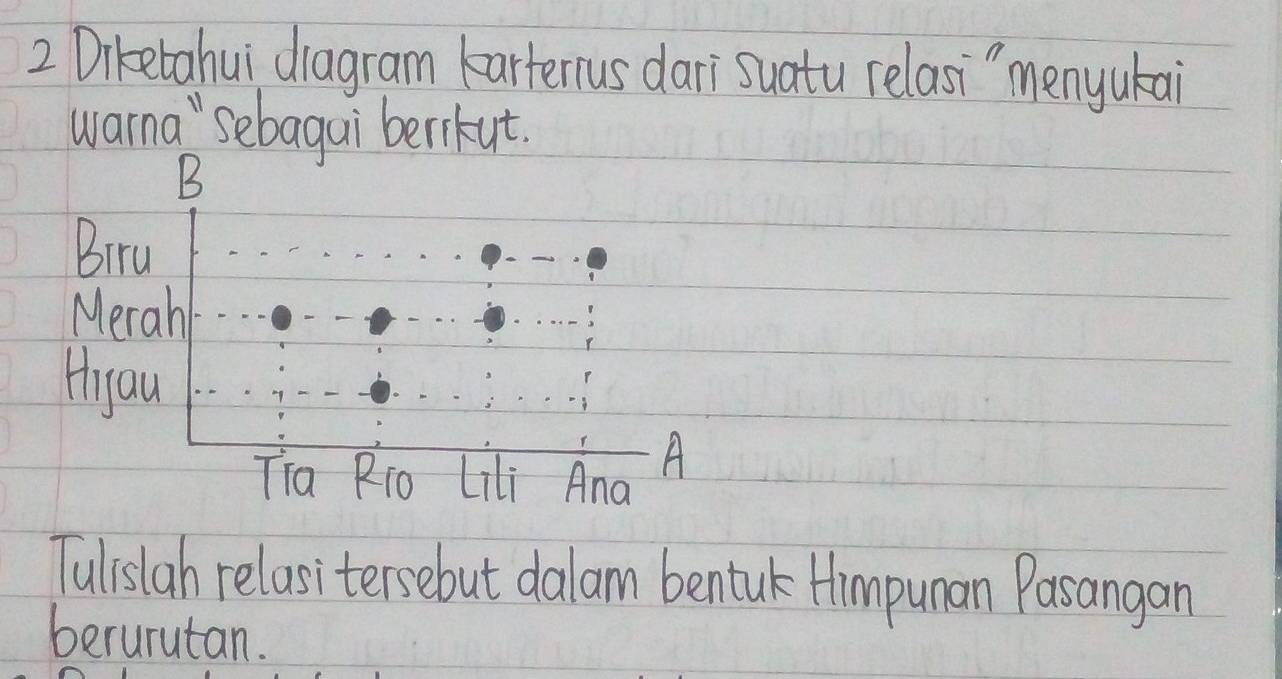 2 Diketahui diagram karterius dari suatu relasi "menyukai
warna" sebagai berikut.
B
Biru
Merah
Hijau
A
Tia Rio Lili Ana
Tulislah relasi tersebut dalam bentuk Himpunan Pasangan
berurutan.